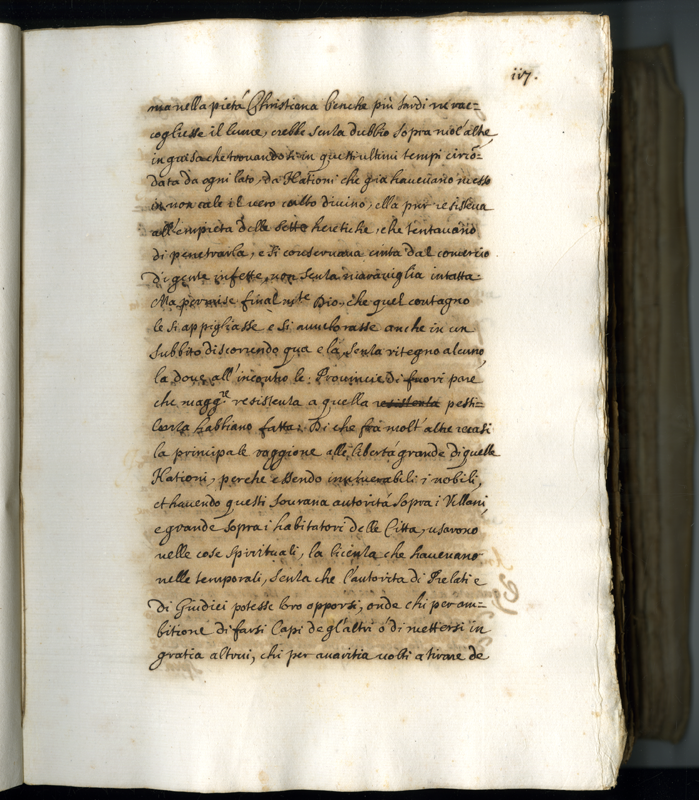 117.
ma nella pietà Christiana benche più tardi ne rac=
cogliesse il lume, crebbe senza dubbio sopra molt'altre
in guisa che trovandosi in questi ultimi tempi circō=
data da ogni lato, da Nationi che già havevano messo
in non cale il vero culto divino, ella pur resisteva
all'empietà delle sette heretiche, che tentavano
di penetrarla, e si conservava cinta dal comercio
di gente infette, non senza maraviglia intatta.
Ma permise finalm.te Dio, che quel contagno
le si appigliasse e si avvalorasse anche in un
subbito discorrendo qua e là, senza ritegno alcuno,
la dove all'incontro le Provincie di fuori pare
che magg.re resistenza a quella resistenza pesti=
lenza habbiano fatta. Di che frà molt'altre recasi
la principale raggione alle libertà grande di quelle
Nationi, perché essendo innumerabili i nobili,
et havendo questi sourana autorità sopra i Villani,
e grande sopra i habitatori delle Città, usarono
nelle cose spirituali, la licenza che havevano
nelle temporali, senza che l'autorità di Prelati e
di Giudici potesse loro opporsi, onde chi per am=
bitione di farsi Capi de gl'altri ò di mettersi in
gratia altrui, chi per avaritia volti a tirare de